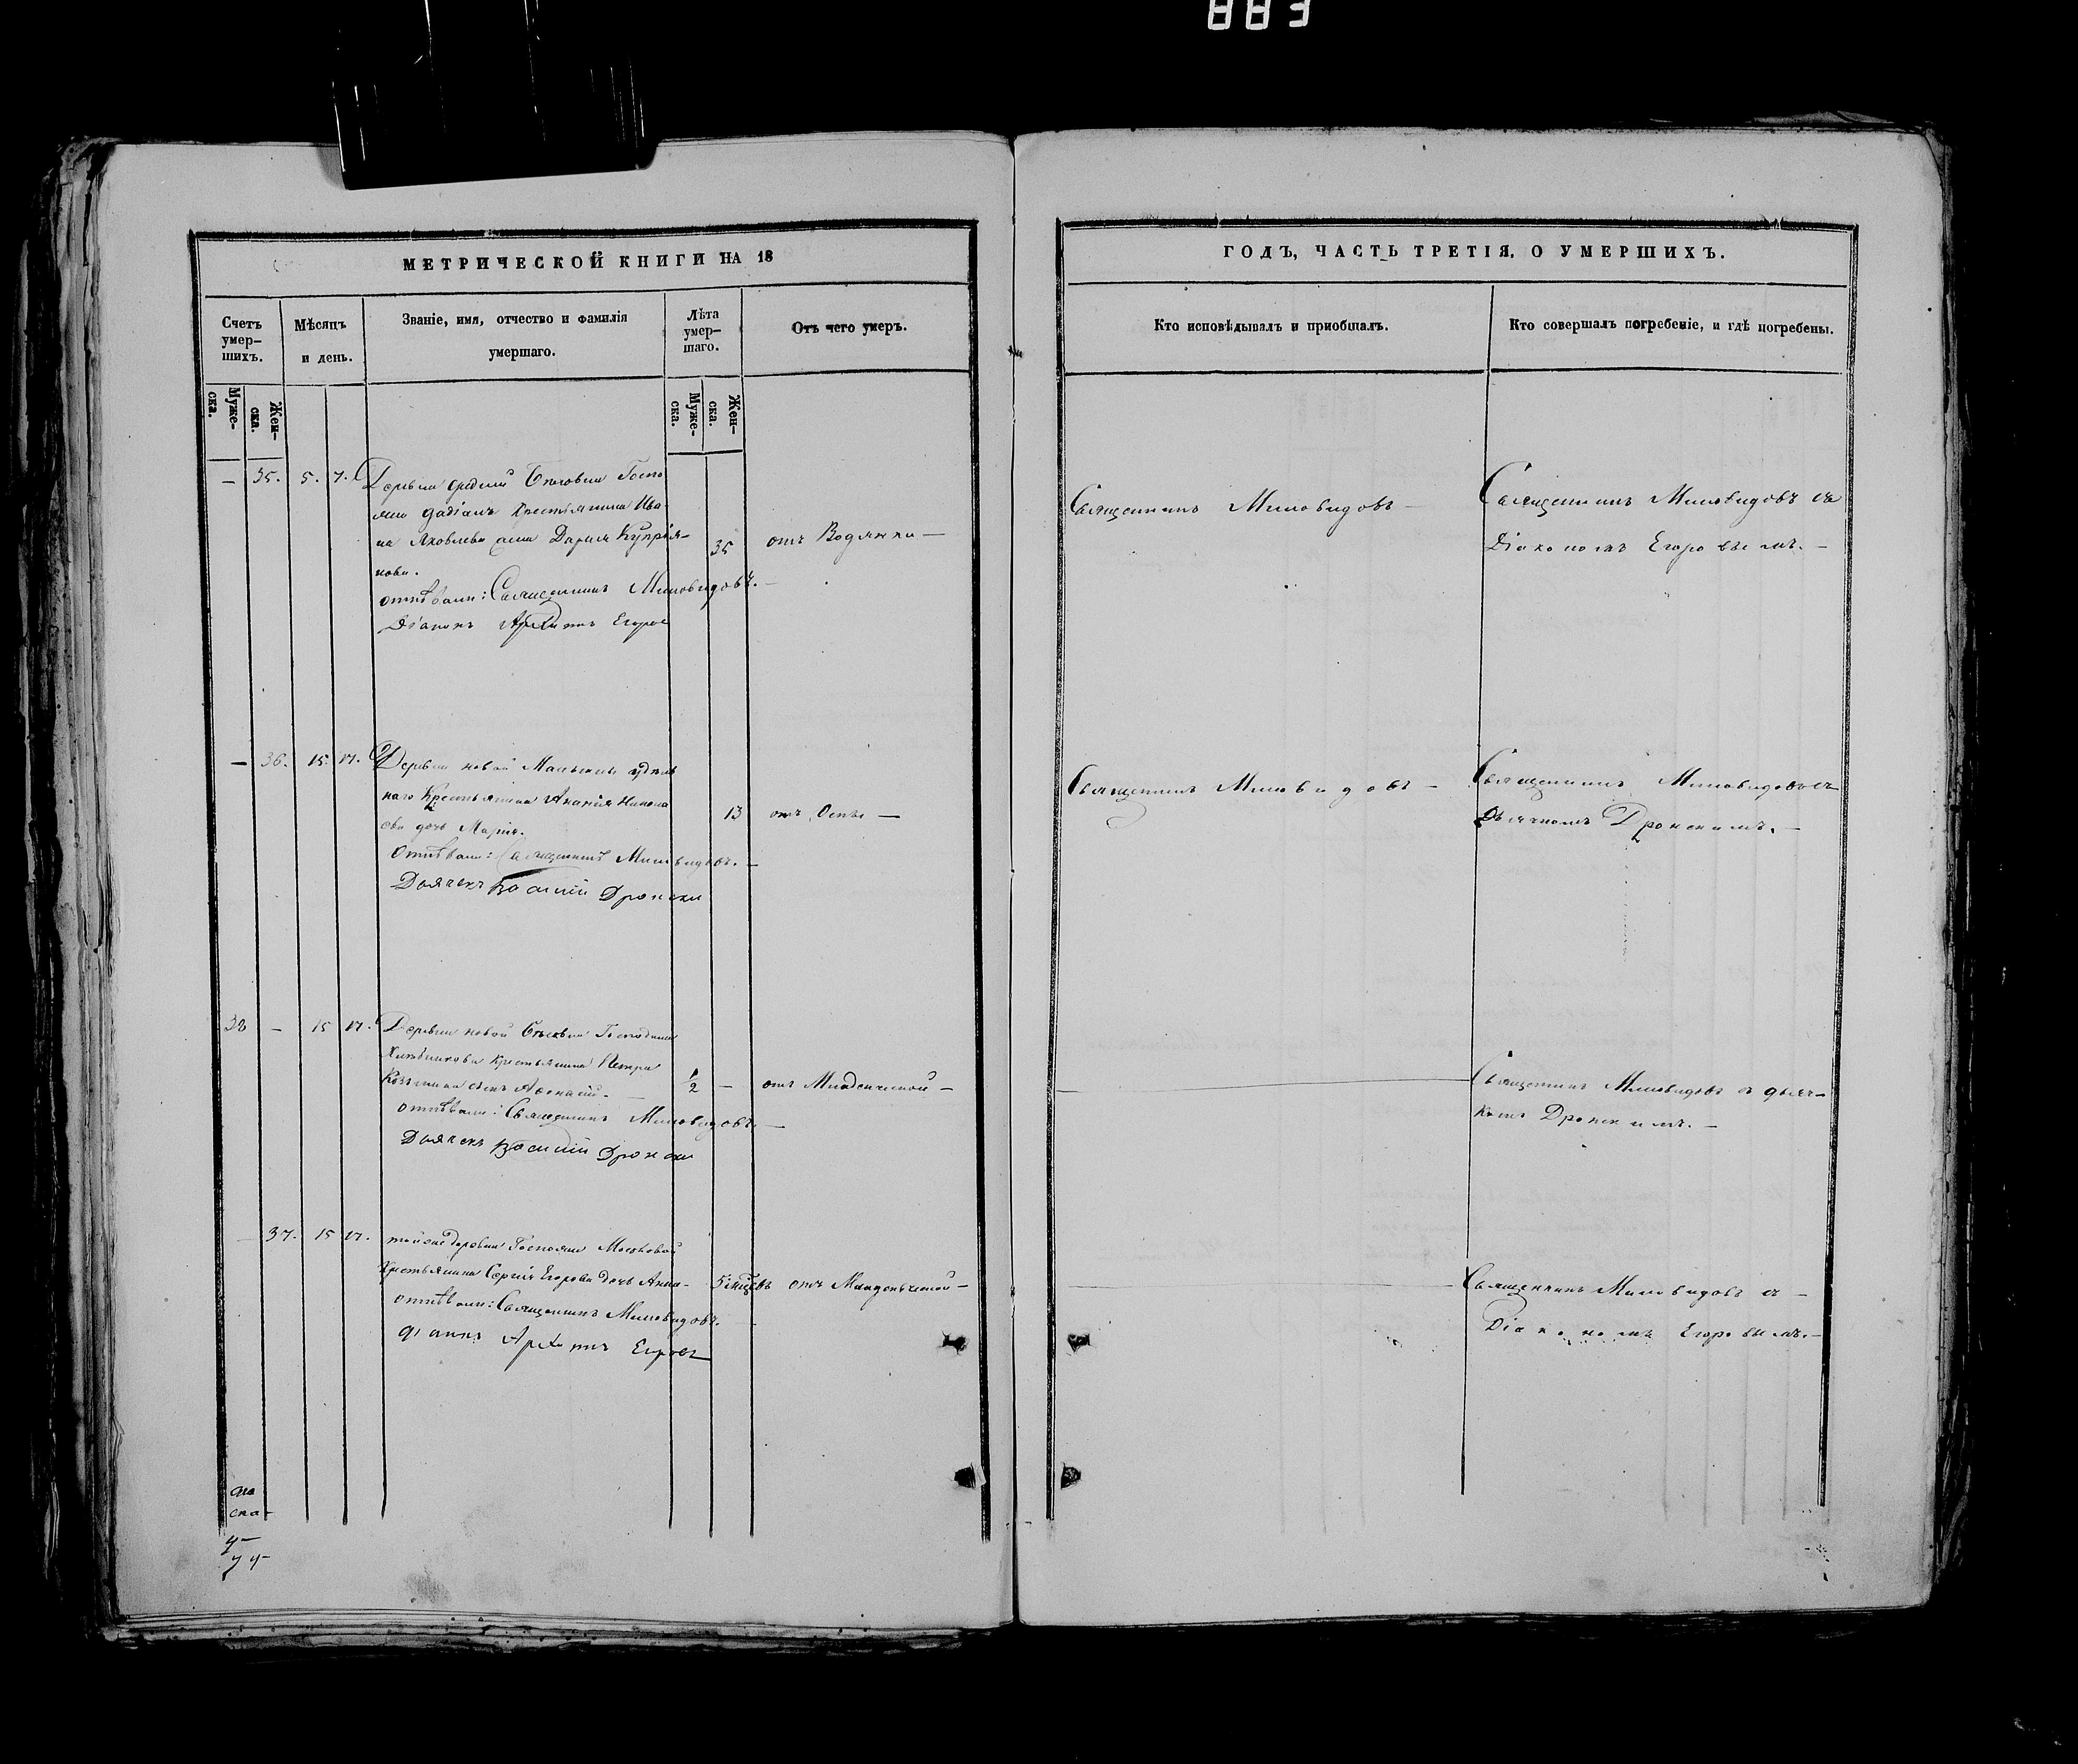 883
МЕТРИЧЕСКОЙ КНИГИ НА 18
Счетъ умер-шихъ.
Мѣсяцъ и день.
Званіе, имя, отчество и фамилія умершаго.
Лѣта умер-шаго.
Отъ чего умеръ.
Муже-ска.
Жен-ска.
Муже-ска.
Жен-ска.
— 35. 5. 7. Деревни
Крестьянина Ива
на Яковлева Дарья Купрія-
нова.
35
отъ Водянки —
отпѣвали: Священникъ Миловидовъ. —
Діаконъ Архипъ Егоровъ
— 36. 15. 17. Деревни новой
наго Крестьянина Ананія Никола
ева дочь Марія.
13 отъ Оспы —
Отпѣвали: Священникъ Миловидовъ. —
Дьячекъ Василій Дронски
38 — 15 17. Деревни новой Господина
Крестьянина Петра
Козьмина сынъ Афонасій. —
1/2 — отъ Младенческой —
отпѣвали: Священникъ Миловидовъ. —
Дьячекъ Василій Дронски
37. 15 17. той же деревни Госпожи
Крестьянина Сергія Егорова дочь Анна —
5 отъ Младенческой —
отпѣвали: Священникъ Миловидовъ.
Архипъ Егоровъ
ГОДЪ, ЧАСТЬ ТРЕТІЯ, О УМЕРШИХЪ.
Кто исповѣдывалъ и пріобщалъ.
Кто совершалъ погребеніе, и гдѣ погребены.
Священникъ Миловидовъ —
Священникъ Миловидовъ съ
Діакономъ Егоровымъ. —
Священникъ Миловидовъ —
Священникъ Миловидовъ съ
Дьячкомъ Дронскимъ. —
Священникъ Миловидовъ съ дьяч-
комъ Дронскимъ. —
Священникъ Миловидовъ съ —
Діакономъ Егоровымъ. —